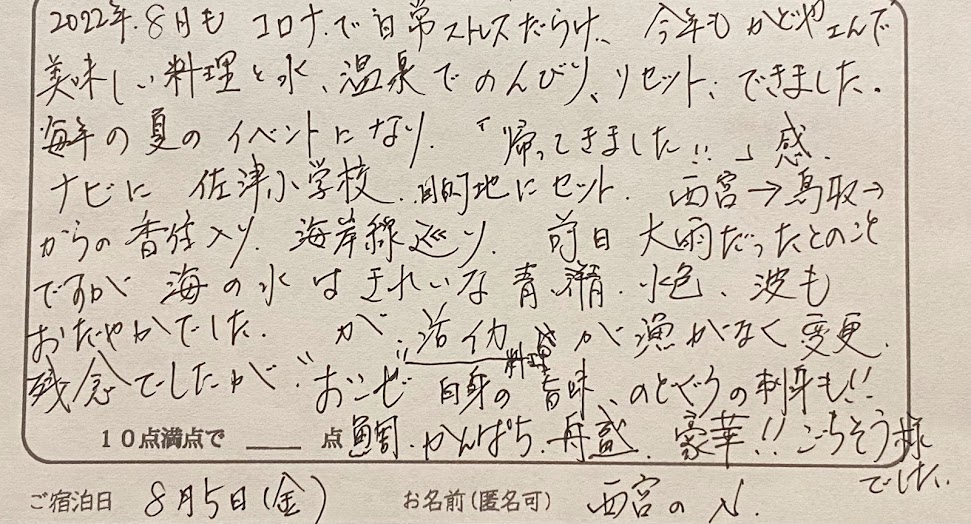 2022年.8月も コロナで日常ストレスだらけ、今年も かどやさんで
美味しい料理と水、温泉でのんびり、リセット、できました。
毎年の夏のイベントになり.「帰ってきました!!」感.
ナビに 佐津小学校.目的地にセット. 西宮→鳥取→
からの香住入り.海岸線巡り. 前日 大雨だったとのこと
ですが 海の水はきれいな青.水色、波も
おだやかでした. が.活イカが漁がなく変更.
残念でしたが "おこぜ"料理 白身の旨味、のどぐろの刺身も!!
10点満点で ____ 点 鯛.かんぱち.舟盛.豪華!!ごちそう様
でした.
ご宿泊日 8月5日(金) お名前(匿名可) 西宮の N.